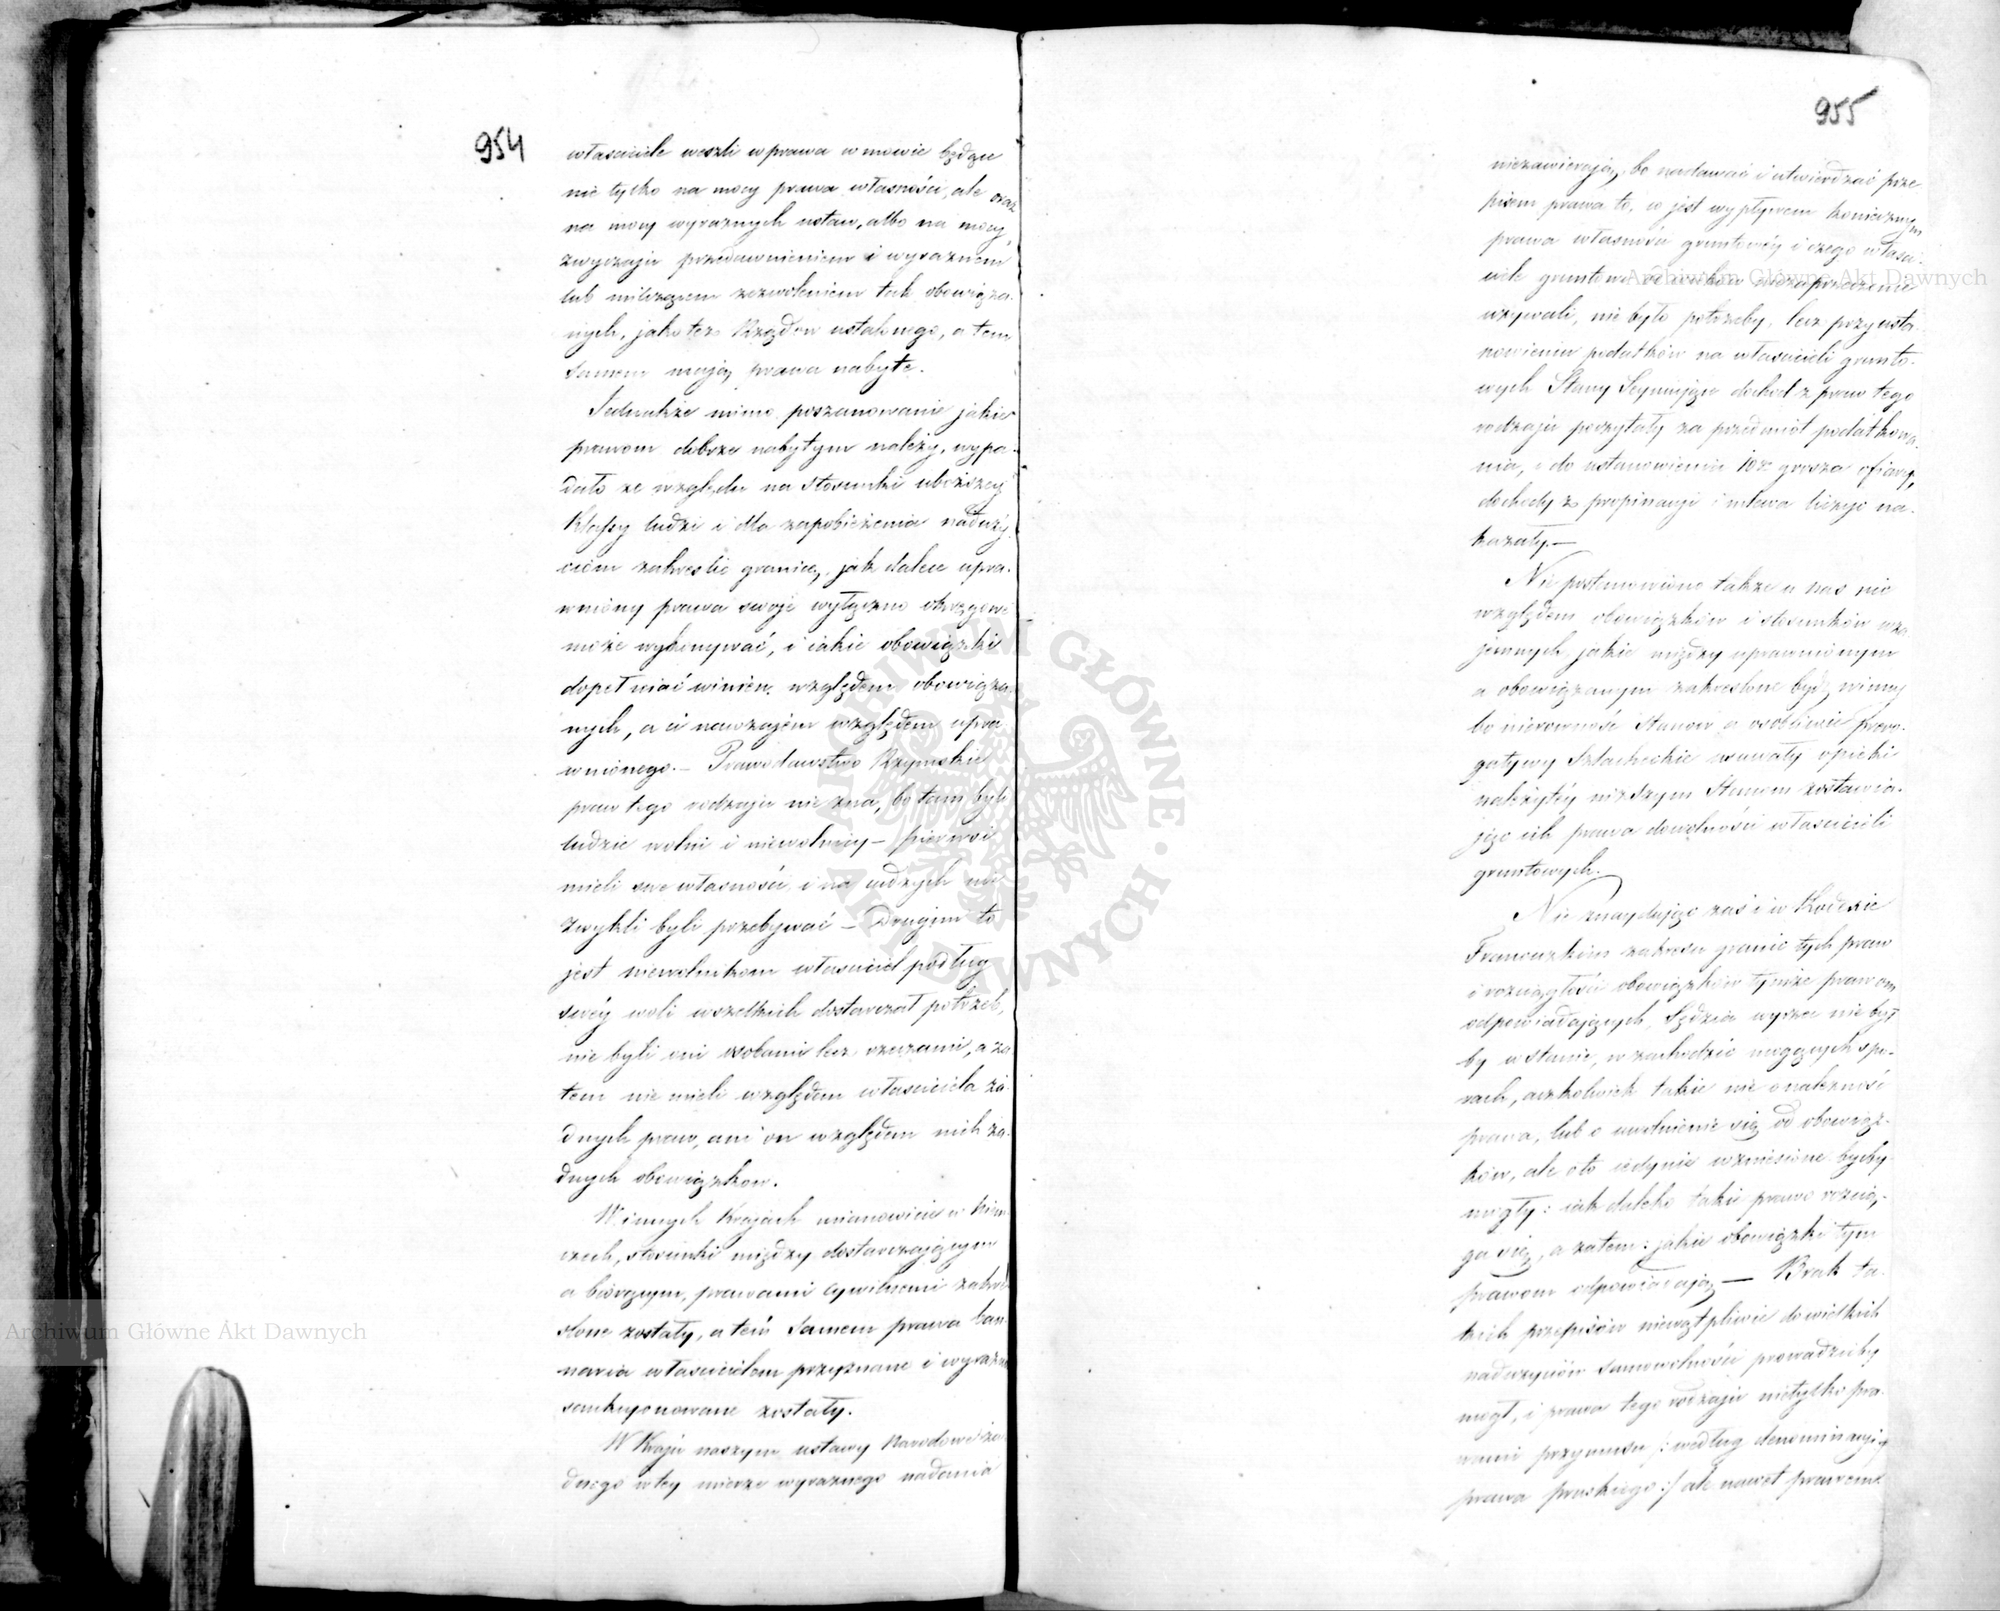 954
własciciele weszli w prawa w mowie będące
nie tylko na mocy prawa własności, ale oraz
na mocy wyraznych ustaw, albo na mocy
zwyczaju przedawnieniem i wyraznem
lub milczącem zezwoleniem tak obowiąza-
nych, jako też Rządów ustalonego, a tem
samem mają prawa nabyte.
Jednakże mimo poszanowanie jakie
prawom dobrze nabytym należy, wypa-
dało ze względu na stosunki uboższey
Klassy ludzi i dla zapobieżenia naduży-
ciom zakreslić granice, jak dalece upra-
wniony prawa swoje wyłączno okręgowe
może wykonywać, i iakie obowiązki
dopełniać winien względem obowiąza-
nych, a ci nawzajem względem upra-
wnionego. – Prawodawstwo Rzymskie
praw tego rodzaju nie zna, bo tam byli
ludzie wolni i niewolnicy – pierwsi
mieli swe własności i na cudzych nie
zwykli byli przebywać – Drugim to
jest niewolnikom własciciel podług
swéy woli wszelkich dostarczał potrzeb,
nie byli oni osobami lecz rzeczami, a za
tem nie mieli względem własciciela ża-
dnych praw, ani on względem nich ża-
dnych obowiązkow.
W innych Krajach mianowicie w Niem
czech, stosunki między dostarczającym
a biorącym, prawami cywilnemi zakre
slone zostały, a tém samem prawa ban-
naria włascicielom przyznane i wyrazne
sankcyonowane zostały.
W Kraju naszym ustawy Narodowe ża-
dnego w tey mierze wyraznego nadania
955
niezawierają, bo nadawać i utwierdzać prze
pisem prawa to, co jest wypływem koniecznym
prawa własności gruntowéy i czego włascì-
ciele gruntowi od wieków niezaprzeczenie
używali, nie było potrzeby, lecz przy usta-
nowieniu podatków na włascicieli grunto-
wych Stany Seymujące dochod z praw tego
rodzaju poczytały za przedmiot podatkowa-
nia, i do ustanowienia 10º grosza ofiary,
dochody z propinacyi i mlewa liczyć na-
kazały. –
Nie postanowiono także u nas nic
względem obowiązków i stosunków wza
jemnych, jakie między uprawnionym
a obowiązanym zakreslone bydź winny
bo nierowność Stanów a osobliwie prero-
gatywy Szlacheckie usuwały opieki
należytéy niższym Stanom zostawia-
jąc ich prawa dowolności włascicieli
gruntowych.
Nie znaydując zaś i w Kodexie
Francuzkim zakresu granic tych praw
i rozciągłości obowiązków tymże prawom
odpowiadających, Sędzia wyrzec nie był
by w stanie, w zachodzić mogących spo-
rach, aczkolwiek takie nie o należność
prawa, lub o uwolnienie się od obowiąz-
ków, ale oto iedynie wzniesione byćby
mogły: iak daleko takie prawo rozcią-
ga się, a zatem: jakie obowiązki tym
prawom odpowiadają – Brak ta-
kich przepisów niewątpliwie do wielkich
nadużyciów samowolności prowadziłby
mogł, i prawa tego rodzaju nietylko pra-
wami przymusu /: według denominacyi
prawa pruskiego :/ ale nawet prawem
Archiwum Główne Akt Dawnych
Archiwum Główne Akt Dawnych
ARCHIWUM GŁÓWNE AKT DAWNYCH